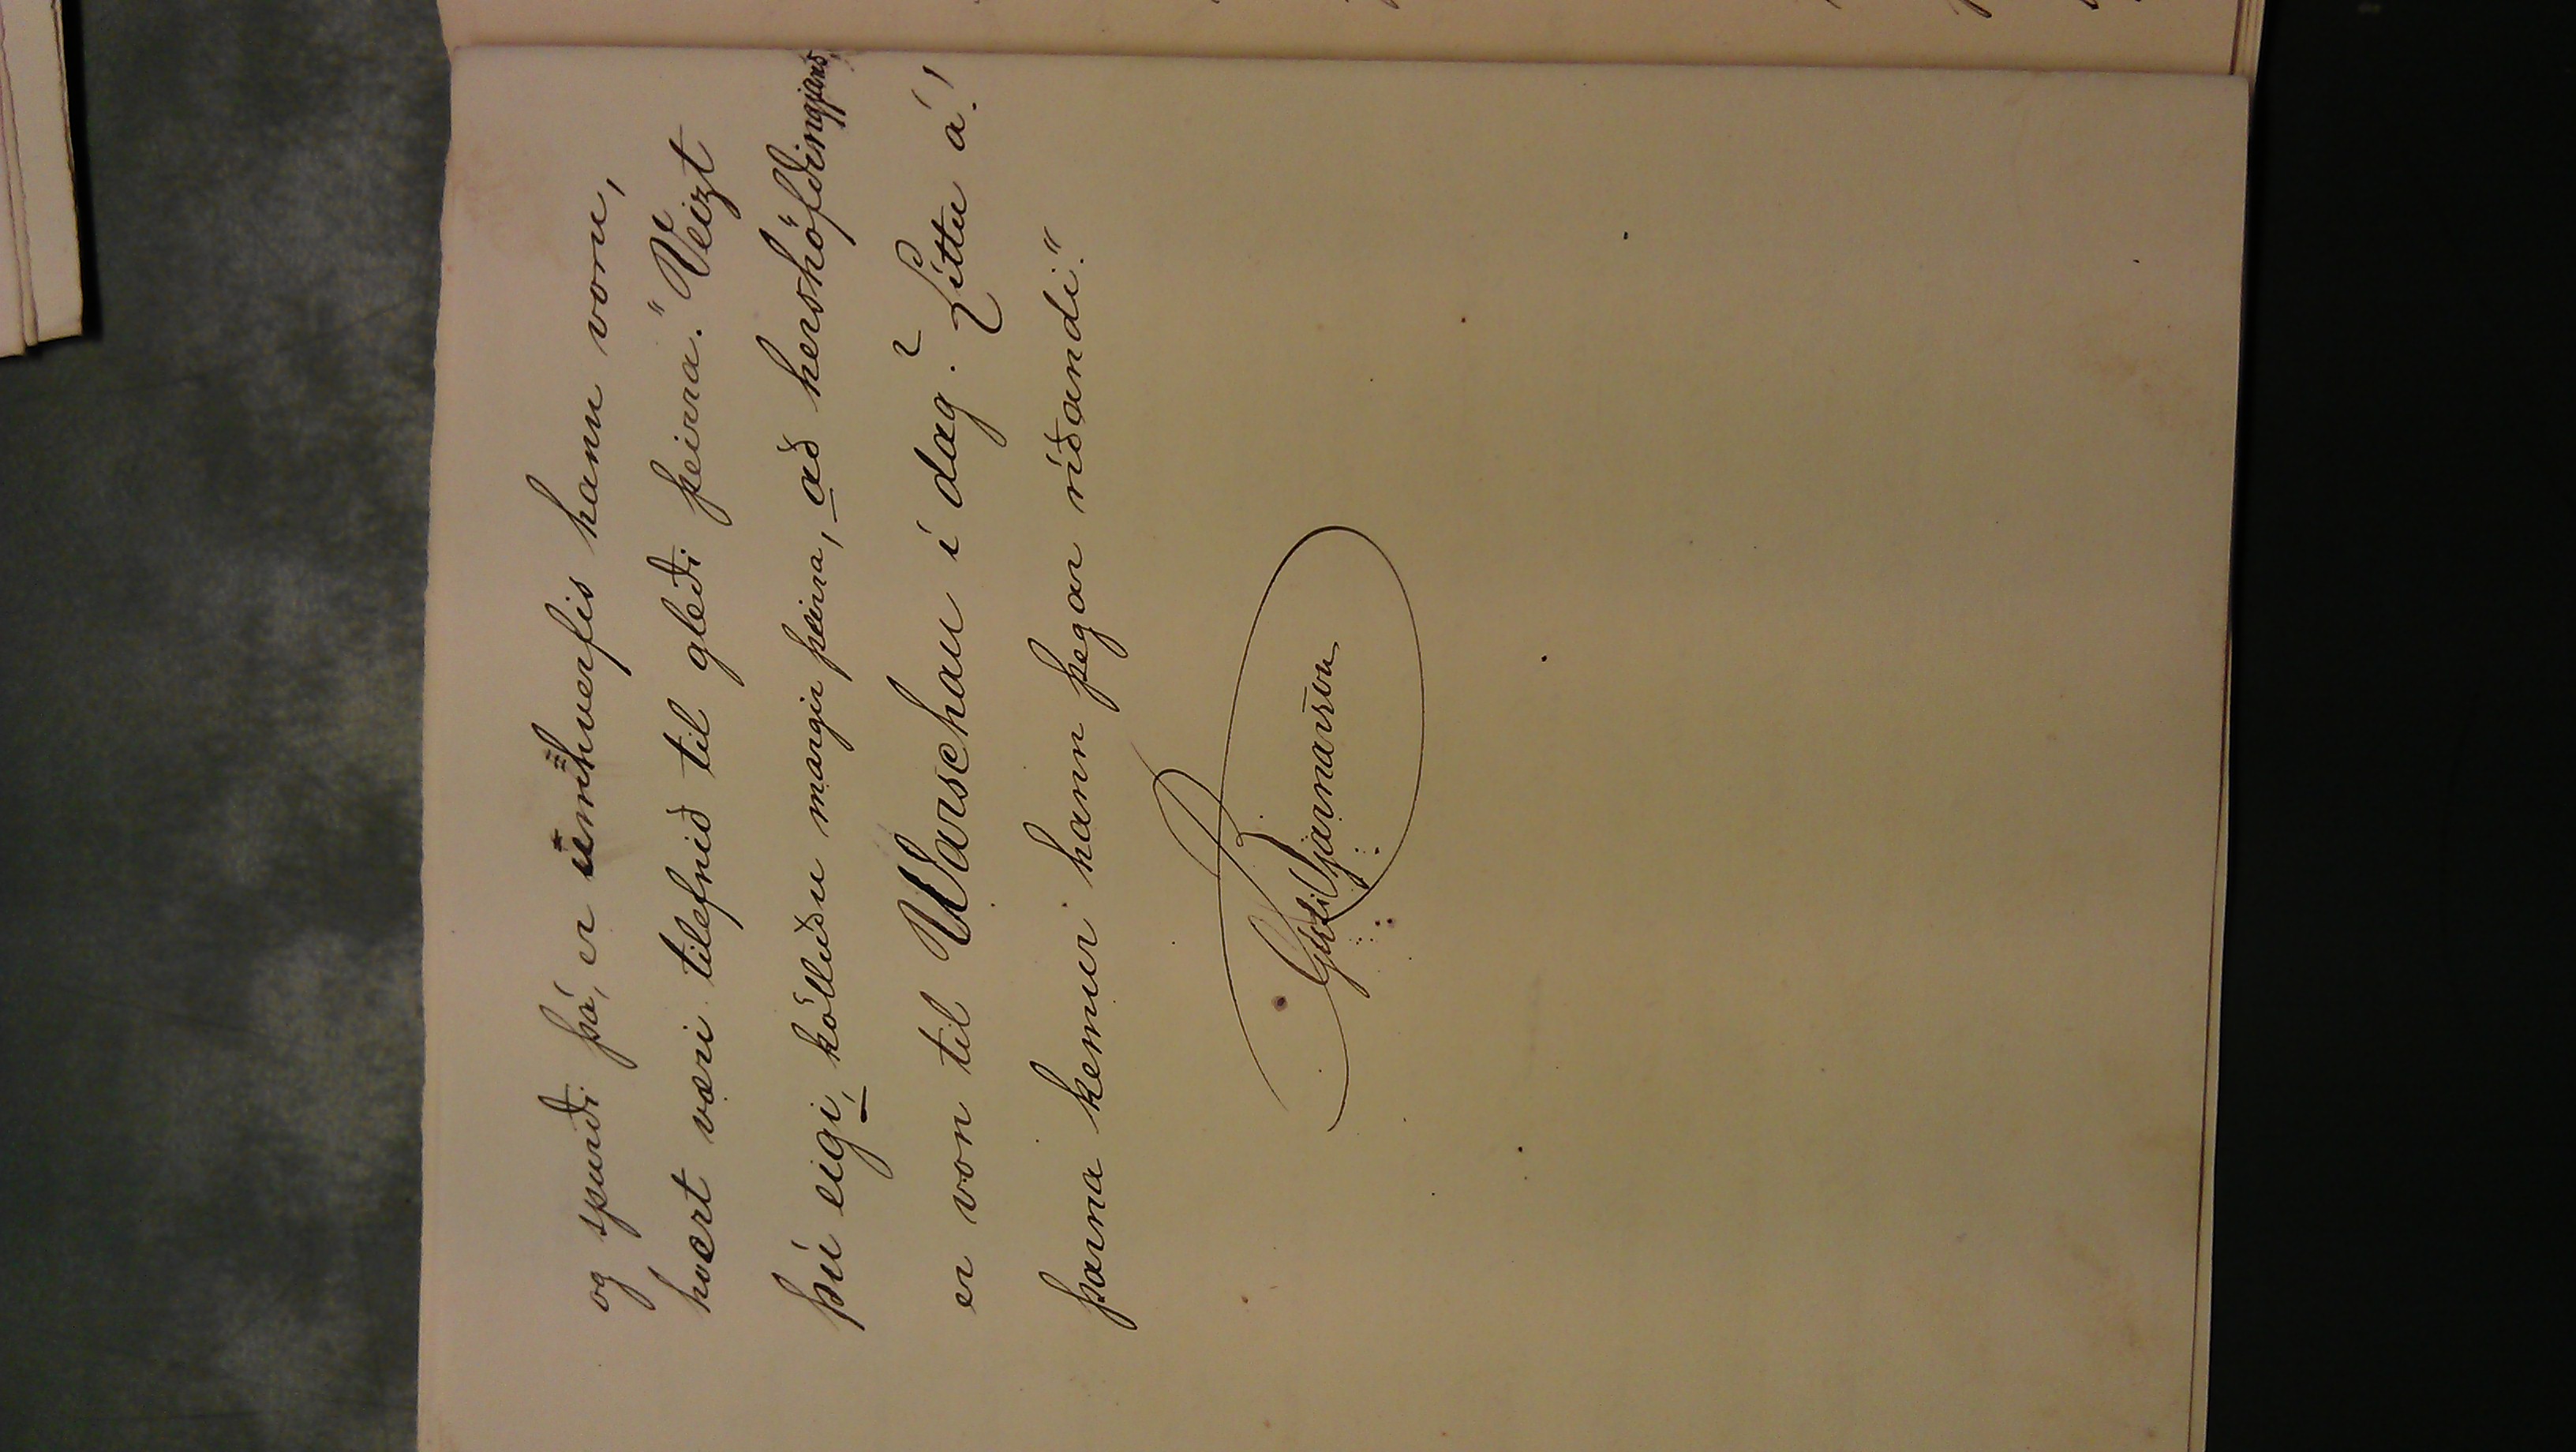 og spurði þá, er umhverfis hann voru,
hvert væri tilefnið til gleði þeirra. "Veizt
þú eigi, kölluðu margir þeirra, að hershöfðingjans
er von til Warschau í dag? Líttu á!
þarna kemur hann þegar ríðandi."
Gísli Bjarnarson